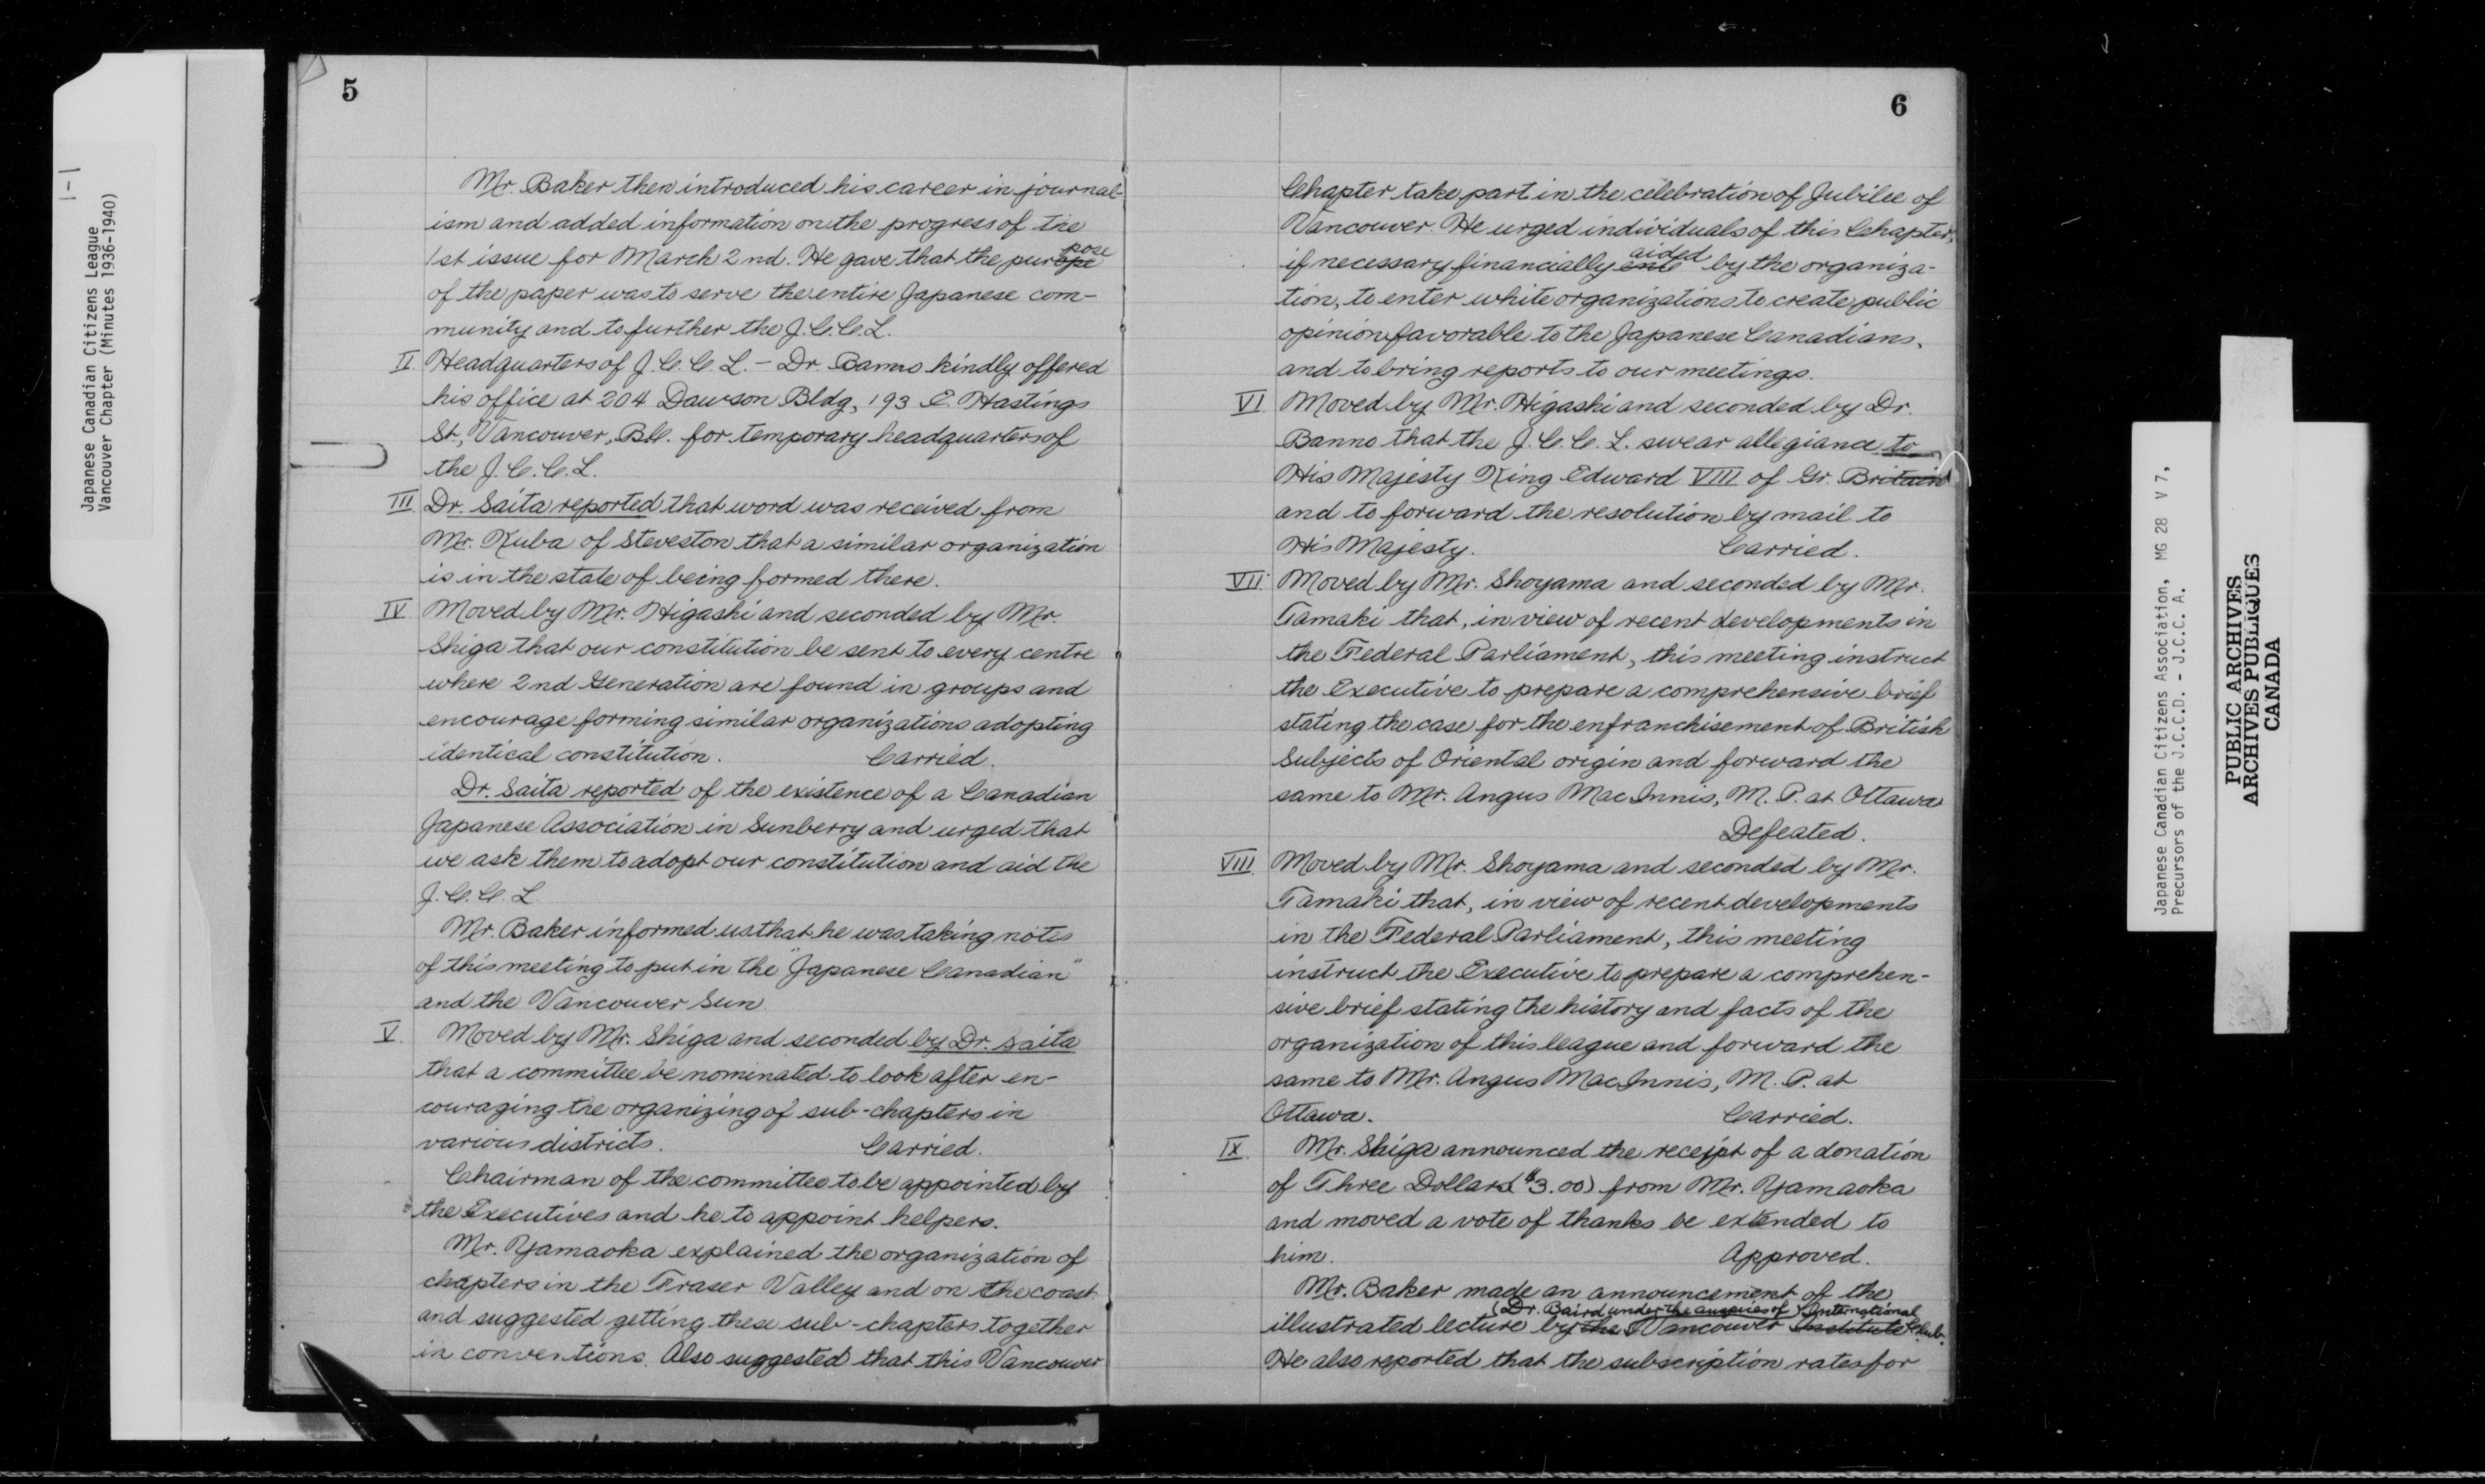 1-1
Japanese Canadian Citizens League
Vancouver Chapter (Minutes 1936-1940)
5
Mr. Baker then introduced his career in journal-
ism and added information on the progress of the
pose
1st issue for March 2nd. He gave that the purope
of the paper was to serve the entire Japanese com-
munity and to further the J.C.C.L.
II. Headquarters of J.C.C.L. - Dr. Banno kindly offered
his office at 204 Dawson Bldg, 193 E. Hastings
St, Vancouver, B.C. for temporary headquarters of
the J.C.C.L.
III. Dr. Saita reported that word was received from
Mr. Kuba of Steveston that a similar organization
is in the state of being formed there.
IV. Moved by Mr. Higashi and seconded by Mr.
Shiga that our constitution be sent to every centre
where 2nd Generation are found in groups and
encourage forming similar organizations adopting
identical constitution. Carried.
Dr. Saita reported of the existence of a Canadian
Japanese Association in Sunberry and urged that
we ask them to adopt our constitution and aid the
J.C.C.L.
Mr. Baker informed us that he was taking notes
of this meeting to put in the "Japanese Canadian"
and the Vancouver Sun
V. Moved by Mr. Shiga and seconded by Dr. Saita
that a committee be nominated to look after en-
couraging the organizing of sub-chapters in
various districts. Carried.
Chairman of the committee to be appointed by
the Executives and he to appoint helpers.
Mr. Yamaoka explained the organization of
chapters in the Fraser Valley and on the coast
and suggested getting these sub-chapters together
in conventions. Also suggested that this Vancouver
6
Chapter take part in the celebration of Jubilee of
Vancouver. He urged individuals of this Chapter,
aided
if necessary financially by the organiza-
tion, to enter white organizations to create public
opinion favorable to the Japanese Canadians,
and to bring reports to our meetings.
VI. Moved by Mr. Higashi and seconded by Dr.
Banno that the J.C.C.L. swear allegiance to
His Majesty King Edward VIII of Gr. Britain
and to forward the resolution by mail to
His Majesty. Carried.
VII. Moved by Mr. Shoyama and seconded by Mr.
Tamaki that, in view of recent developments in
the Federal Parliament, this meeting instruct
the Executive to prepare a comprehensive brief
stating the case for the enfranchisement of British
Subjects of Oriental origin and forward the
same to Mr. Angus MacInnis, M.P. at Ottawa
Defeated.
VIII. Moved by Mr. Shoyama and seconded by Mr.
Tamaki that, in view of recent developments
in the Federal Parliament, this meeting
instruct the Executive to prepare a comprehen-
sive brief stating the history and facts of the
organization of this league and forward the
same to Mr. Angus MacInnis, M.P. at
Ottawa. Carried.
IX. Mr. Shiga announced the receipt of a donation
of Three Dollars ($3.00) from Mr. Yamaoka
and moved a vote of thanks be extended to
him. Approved.
Mr. Baker made an announcement of the
(Dr. Baird under the auspices of) International
illustrated lecture by the Vancouver Institute Club.
He also reported that the subscription rates for
Japanese Canadian Citizens Association, MG 28 V 7,
Precursors of the J.C.C.D. - J.C.C. A.
PUBLIC ARCHIVES
ARCHIVES PUBLIQUES
CANADA